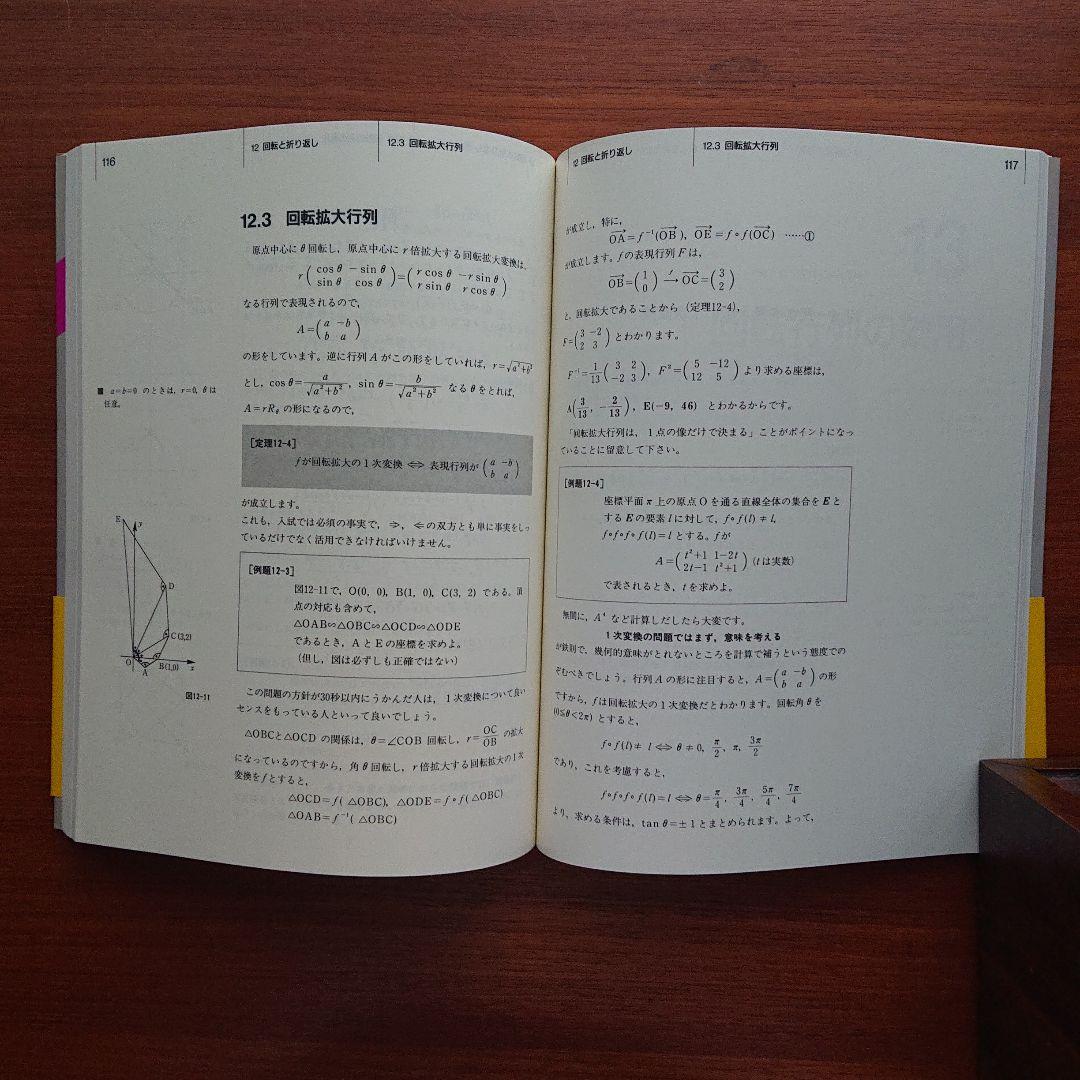 116
12 回転と折り返し
12.3 回転拡大行列
12.3 回転拡大行列
原点中心に θ 回転し，原点中心に r 倍拡大する回転拡大変換は，
r(cos θ −sin θ / sin θ cos θ)=(r cos θ −r sin θ / r sin θ r cos θ)
なる行列で表現されるので，
A=(a −b / b a)
の形をしています。逆に行列 A がこの形をしていれば，r=√(a²+b²)
とし，cos θ=a/√(a²+b²)，sin θ=b/√(a²+b²) なる θ をとれば，
■ a=b=0 のときは，r=0，θ は
任意。
A=rRθ の形になるので，
［定理12-4］
f が回転拡大の１次変換 ⟺ 表現行列が (a −b / b a)
が成立します。
これも，入試では必須の事実で，⇒，⇐の双方とも単に事実をしっ
ているだけでなく活用できなければいけません。
［例題12-3］
図12-11で，O(0, 0)，B(1, 0)，C(3, 2) である。頂
点の対応も含めて，
△OAB∽△OBC∽△OCD∽△ODE
であるとき，A と E の座標を求めよ。
（但し，図は必ずしも正確ではない）
E
y
D
C(3,2)
O
A
B(1,0)
x
図12-11
この問題の方針が30秒以内にうかんだ人は，１次変換について良い
センスをもっている人といって良いでしょう。
△OBCと△OCD の関係は，θ=∠COB 回転し，r=OC/OB の拡大
になっているのですから，角 θ 回転し，r 倍拡大する回転拡大の１次
変換を f とすると，
△OCD=f(△OBC)，△ODE=f∘f(△OBC)
△OAB=f⁻¹(△OBC)
12 回転と折り返し
12.3 回転拡大行列
117
が成立し，特に，
OA→=f⁻¹(OB→)，OE→=f∘f(OC→) ……①
が成立します。f の表現行列 F は，
OB→=(1 / 0) —f→ OC→=(3 / 2)
と，回転拡大であることから（定理12-4），
F=(3 −2 / 2 3) とわかります。
F⁻¹=1/13(3 2 / −2 3)，F²=(5 −12 / 12 5) より求める座標は，
A(3/13, −2/13)，E(−9, 46) とわかるからです。
「回転拡大行列は，１点の像だけで決まる」ことがポイントになっ
ていることに留意して下さい。
［例題12-4］
座標平面 π 上の原点 O を通る直線全体の集合を E と
する E の要素 l に対して，f∘f(l)≠l，
f∘f∘f∘f(l)=l とする。f が
A=(t²+1 1−2t / 2t−1 t²+1) (t は実数)
で表されるとき，t を求めよ。
無闇に，A⁴ など計算しだしたら大変です。
１次変換の問題ではまず，意味を考える
が鉄則で，幾何的意味がとれないところを計算で補うという態度での
ぞむべきでしょう。行列 A の形に注目すると，A=(a −b / b a) の形
ですから，f は回転拡大の１次変換だとわかります。回転角 θ を
(0≦θ<2π) とすると，
f∘f(l)≠l ⟺ θ≠0, π/2, π, 3π/2
であり，これを考慮すると，
f∘f∘f∘f(l)=l ⟺ θ=π/4, 3π/4, 5π/4, 7π/4
より，求める条件は，tan θ=±1 とまとめられます。よって，